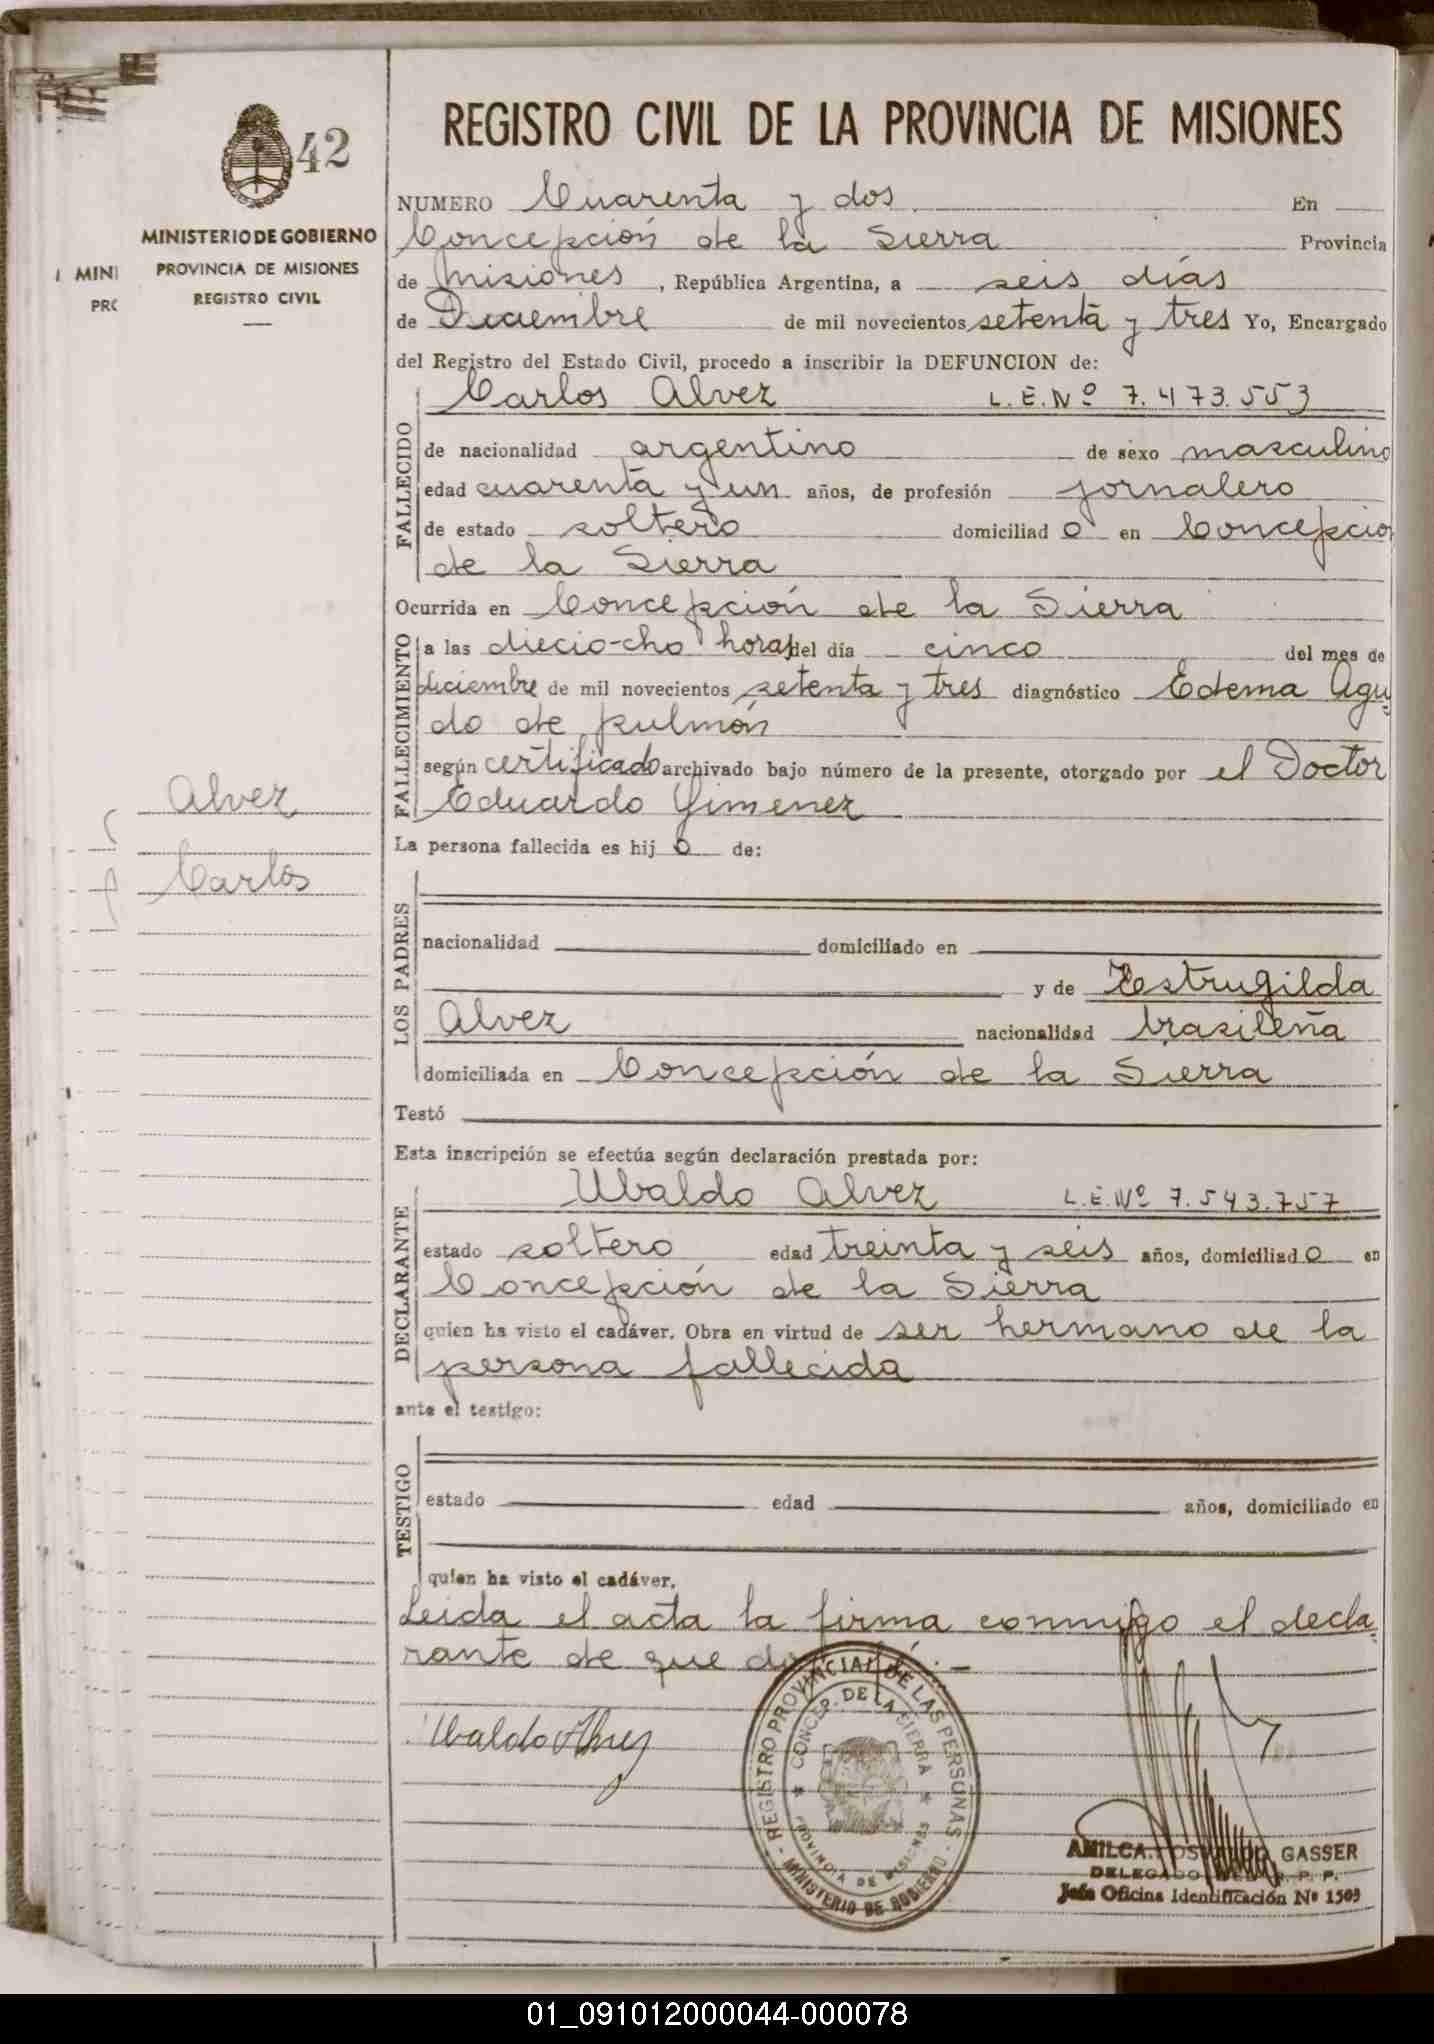 42
MINISTERIO DE GOBIERNO
PROVINCIA DE MISIONES
REGISTRO CIVIL
MINI
PRO
Alvez
Carlos
REGISTRO CIVIL DE LA PROVINCIA DE MISIONES
NUMERO Cuarenta y dos En
Concepción de la Sierra Provincia
de Misiones, República Argentina, a seis días
de Diciembre de mil novecientos setenta y tres Yo, Encargado
del Registro del Estado Civil, procedo a inscribir la DEFUNCION de:
FALLECIDO
Carlos Alvez L.E.Nº 7.473.553
de nacionalidad argentino de sexo masculino
edad cuarenta y un años, de profesión jornalero
de estado soltero domiciliad o en Concepción
de la Sierra
Ocurrida en Concepción de la Sierra
FALLECIMIENTO
a las diecio-cho horas del día cinco del mes de
diciembre de mil novecientos setenta y tres diagnóstico Edema Agu-
do de pulmón
según certificado archivado bajo número de la presente, otorgado por el Doctor
Eduardo Gimenez
La persona fallecida es hij o de:
LOS PADRES
nacionalidad domiciliado en
y de Estrugilda
Alvez nacionalidad brasileña
domiciliada en Concepción de la Sierra
Testó
Esta inscripción se efectúa según declaración prestada por:
DECLARANTE
Ubaldo Alvez L.E.Nº 7.543.757
estado soltero edad treinta y seis años, domiciliado en
Concepción de la Sierra
quien ha visto el cadáver. Obra en virtud de ser hermano de la
persona fallecida
ante el testigo:
TESTIGO
estado edad años, domiciliado en
quien ha visto el cadáver.
Leída el acta la firma conmigo el decla-
rante de que doy fé.-
Ubaldo Alvez
REGISTRO PROVINCIAL DE LAS PERSONAS
CONCEP. DE LA SIERRA
PROVINCIA DE MISIONES
MINISTERIO DE GOBIERNO
AMILCAR OSVALDO GASSER
DELEGADO DEL R. P. P.
Jefe Oficina Identificación Nº 1503
01_091012000044-000078